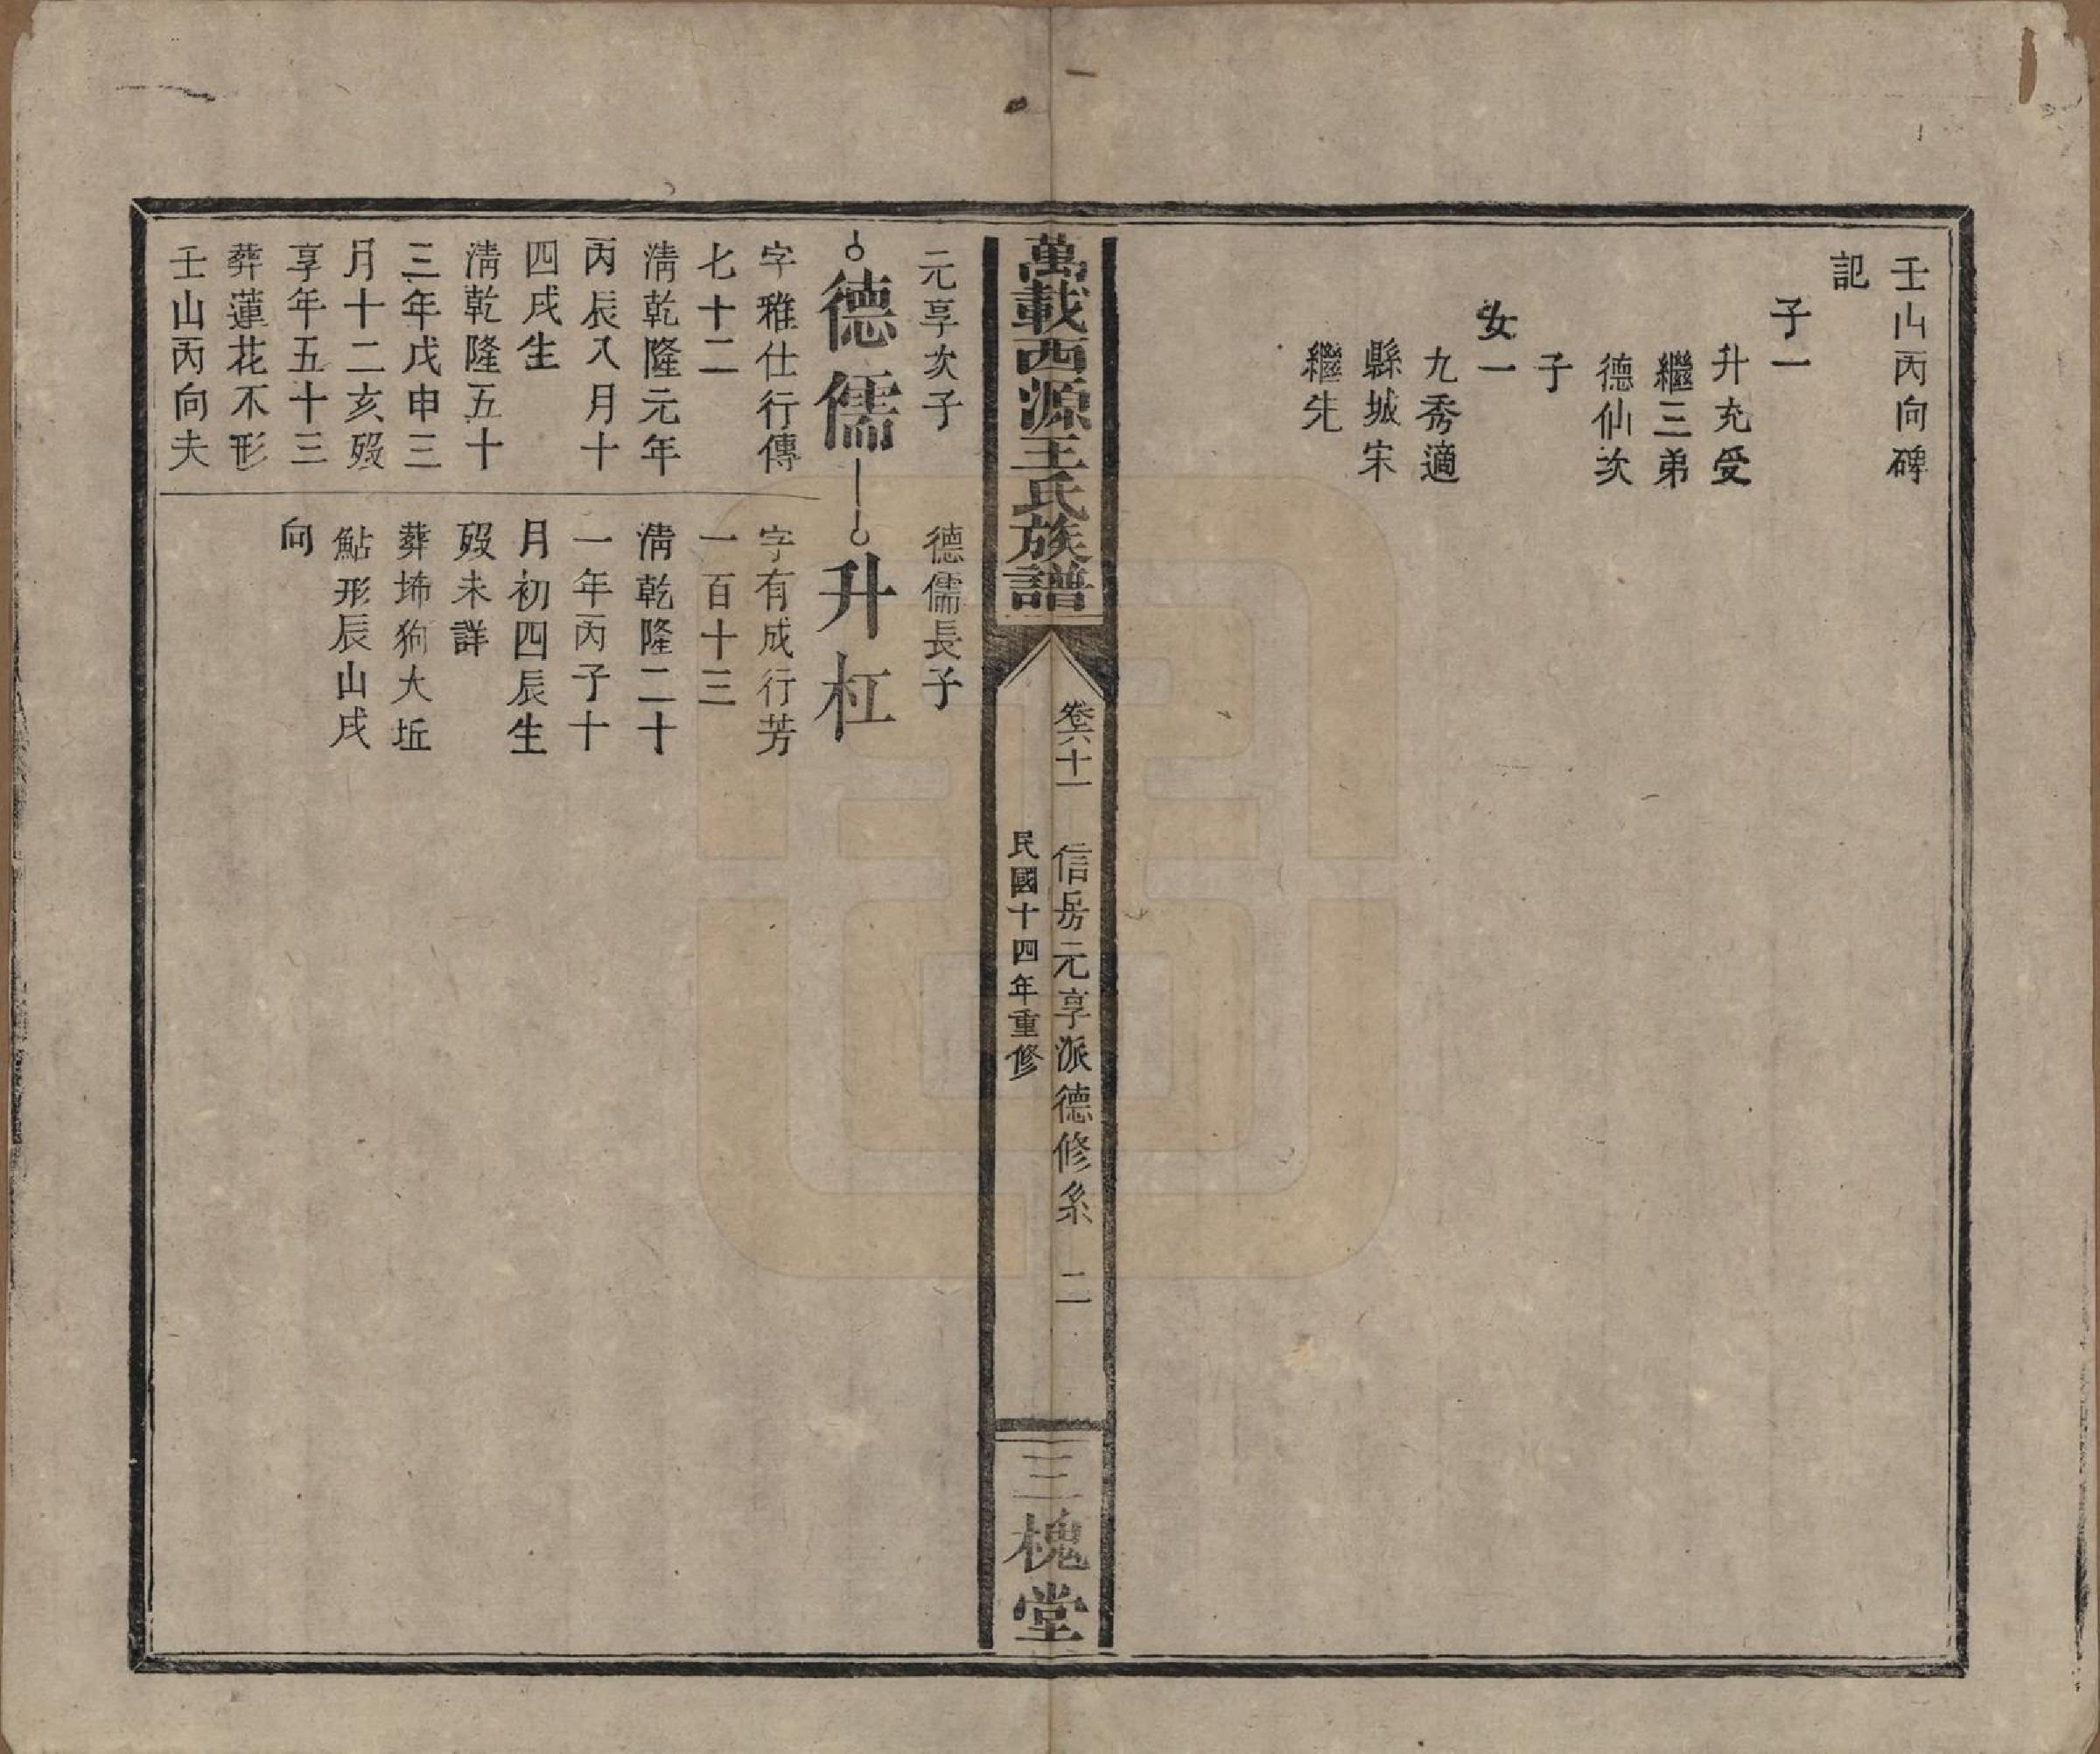 壬山丙向碑
記
子一
升充受
繼三弟
德仙次
子
女一
九秀適
縣城宋
繼先
萬載西源王氏族譜
卷六十一 信房元享派德修系 二
民國十四年重修
三槐堂
元享次子
德儒
字雅仕行傳
七十二
淸乾隆元年
丙辰八月十
四戌生
淸乾隆五十
三年戊申三
月十二亥歿
享年五十三
葬蓮花不形
壬山丙向夫
德儒長子
升杠
字有成行芳
一百十三
淸乾隆二十
一年丙子十
月初四辰生
歿未詳
葬㘵狗大坵
鮎形辰山戌
向